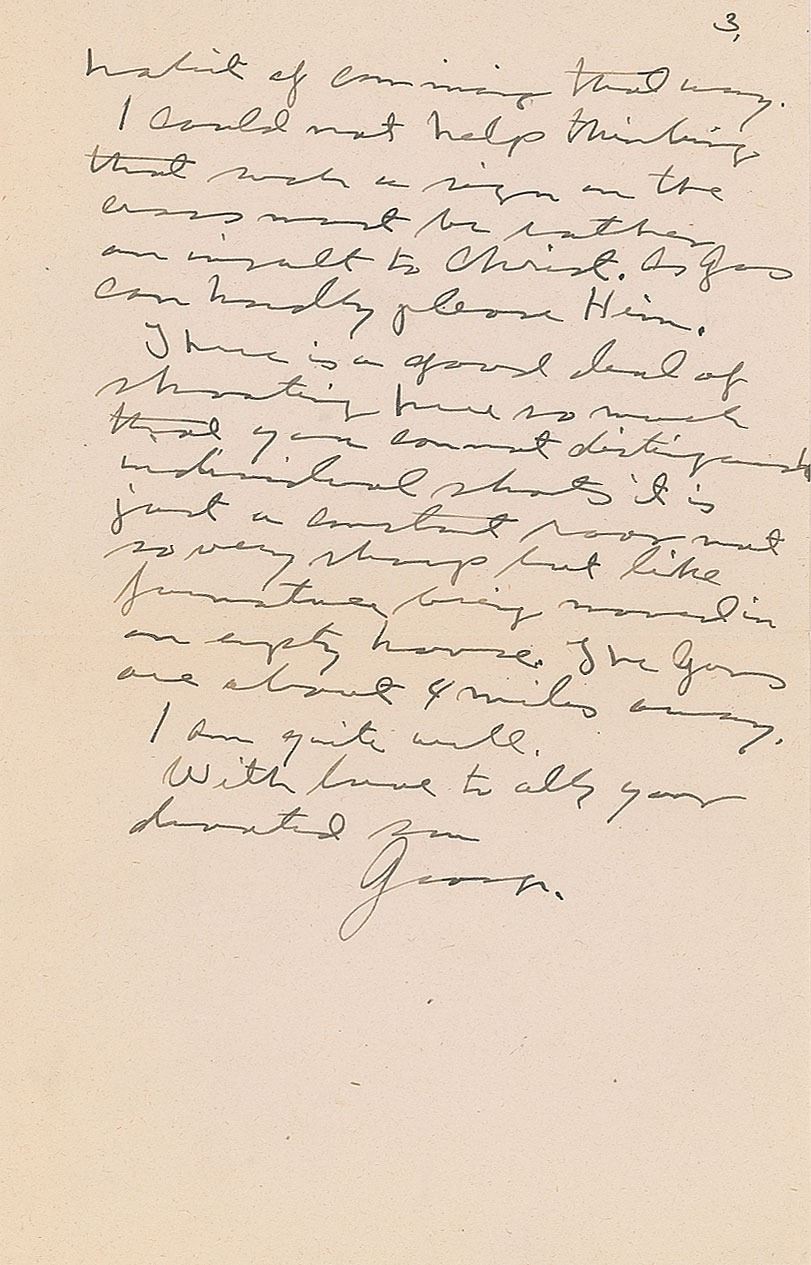 3,
habit of comming that way.
I could not help thinking
that such a sign on the
cross must be rather
an insult to Christ. As gas
can hardly please Him.
There is a good deal of
shooting here so much
that you cannot distinguish
individual shots it is
just a constant roar not
so very sharp but like
furnature being moved in
an empty house. The Guns
are about 4 miles away.
I am quite well.
With love to all, your
devoted son
George.